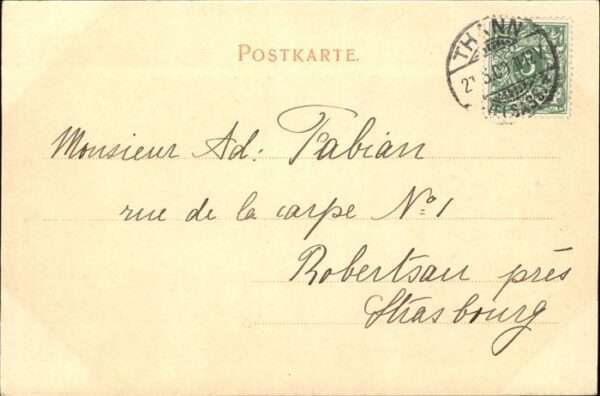 POSTKARTE.
THANN
(ELSASS)
Monsieur Ad: Fabian
rue de la carpe No: 1
Robertsau près
Strasbourg